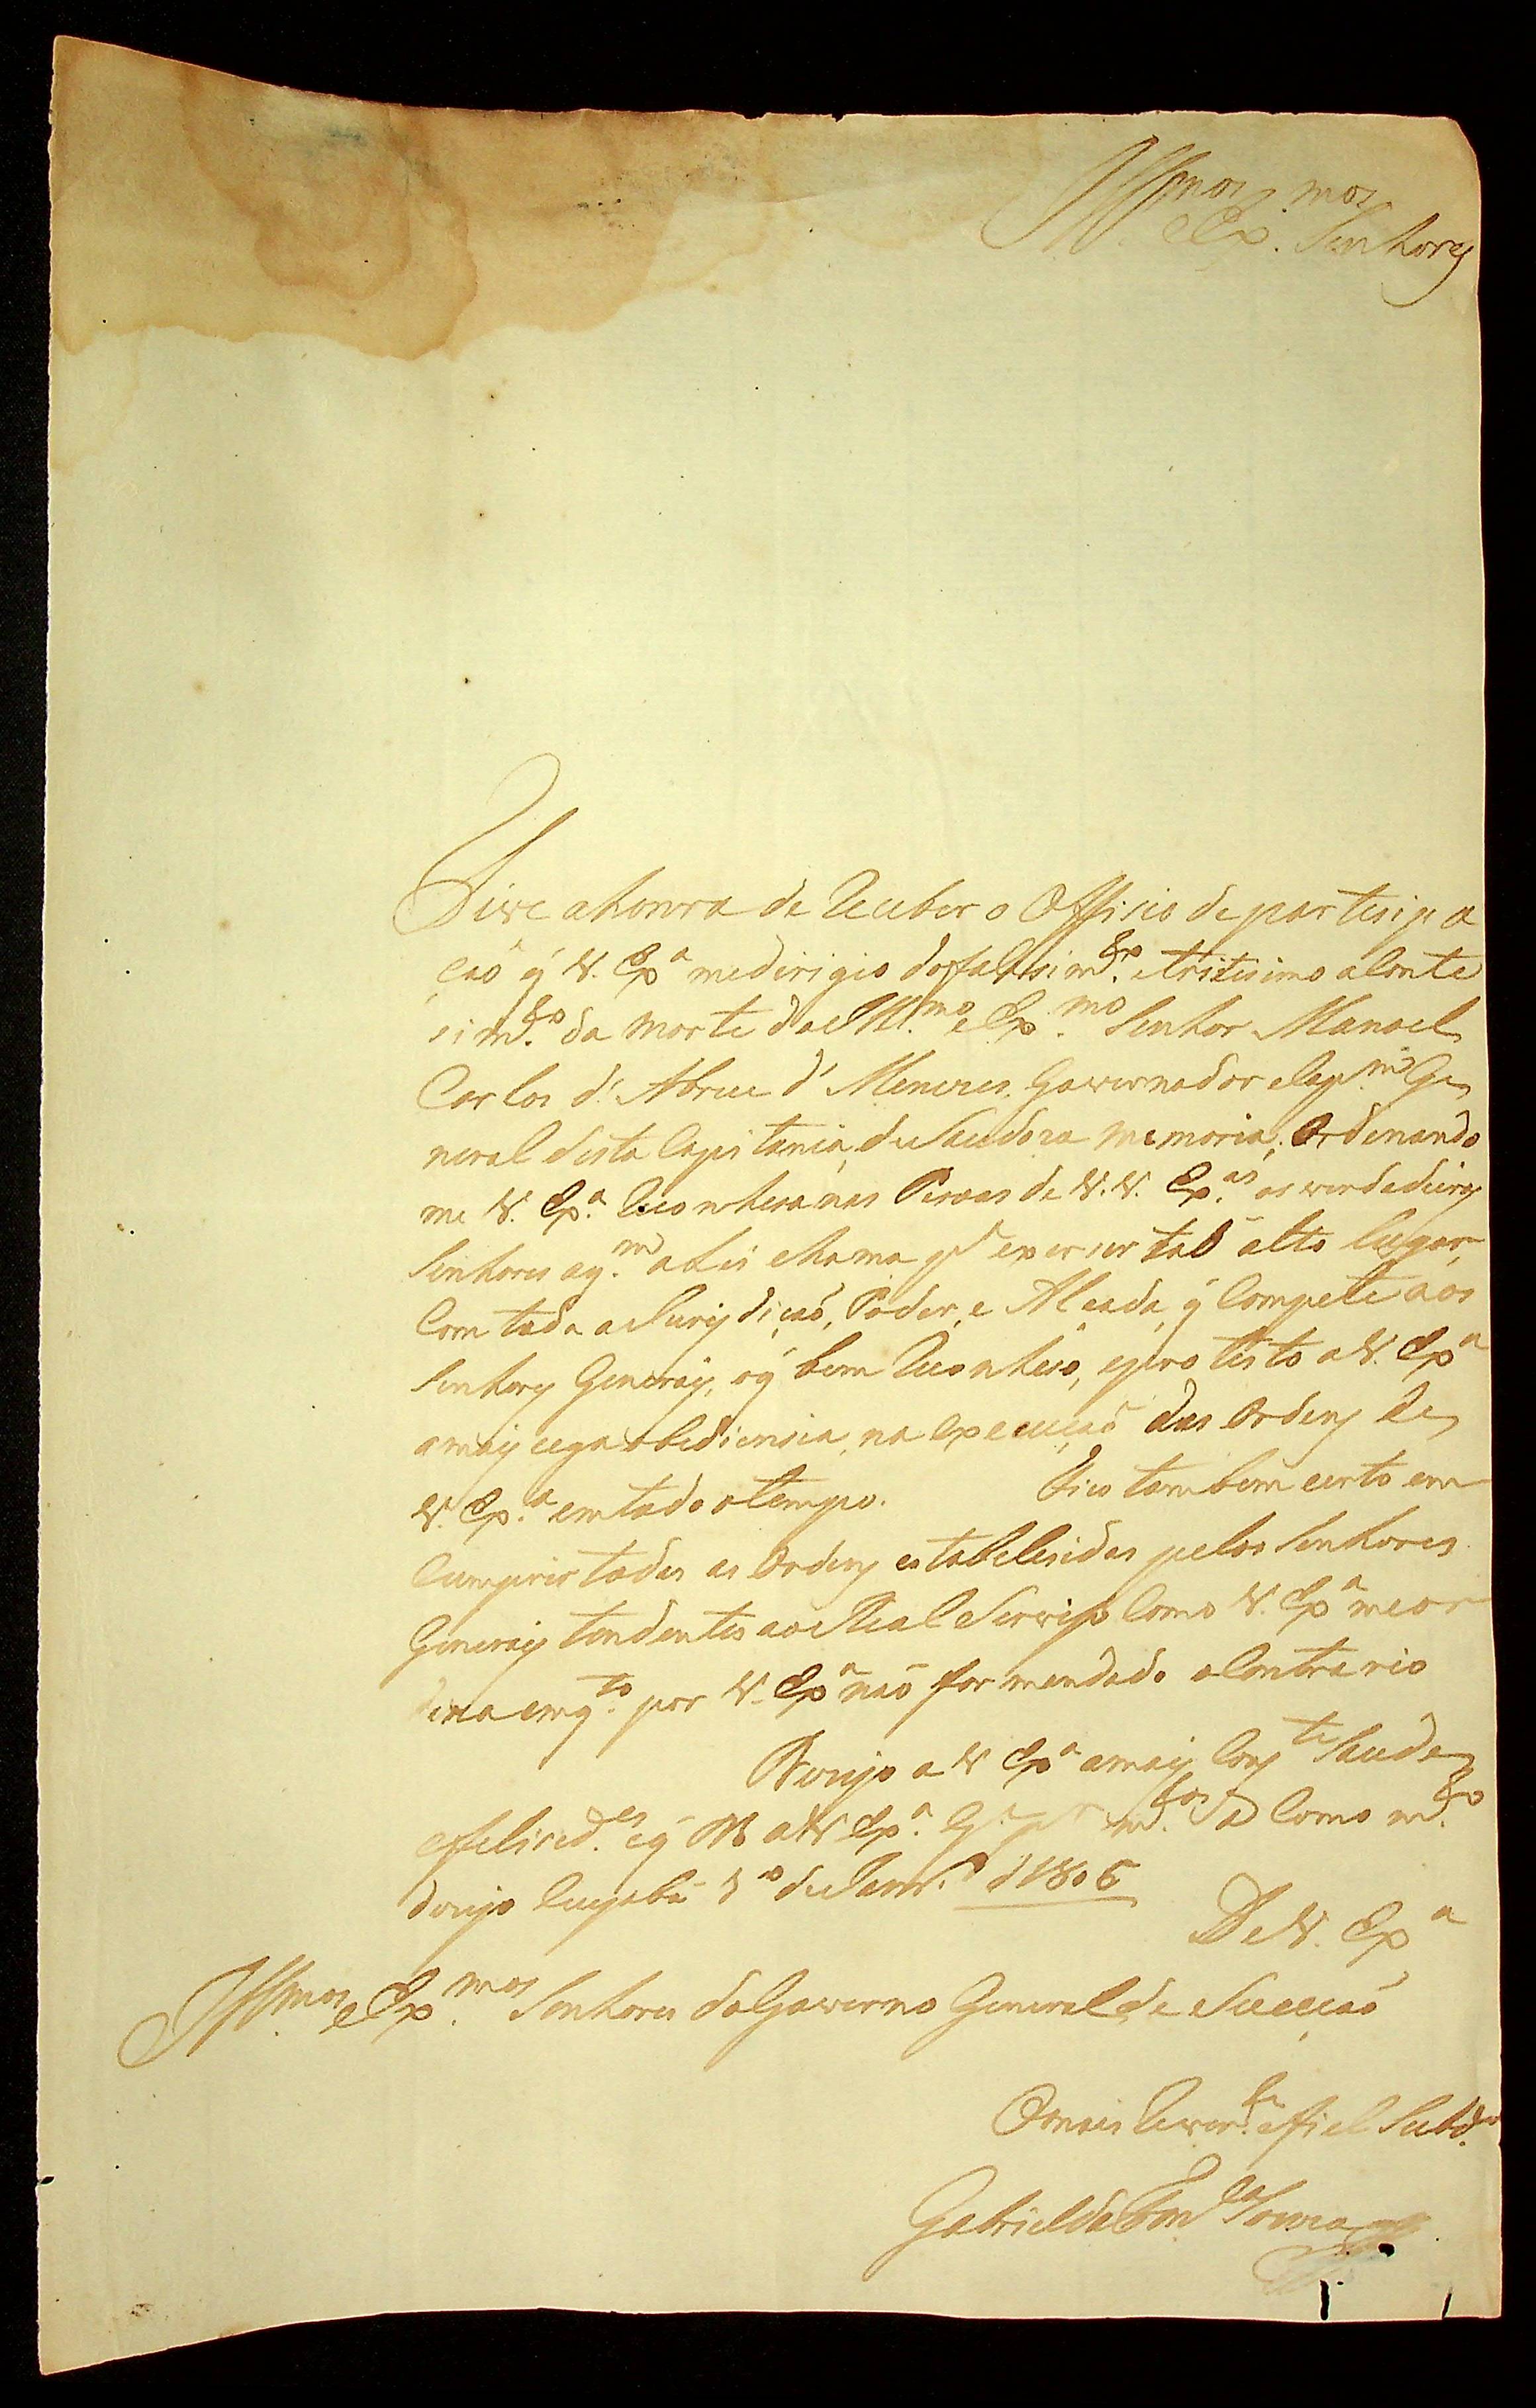 Illmos e Exmos Senhores
Tive a honra de Receber o Officio de partisipa
çaõ q̃ V. Exª me dirigio do falesimto e tristisimo aConte
simto da morte do Illmo e Exmo Senhor Manoel
Carlos d'Abreu d'Menezes Governador e Capm Ge
neral desta Capitania, de Saudoza memoria; Ordenando
me V. Exª Reconhesa nas Pesoas de V.V. Exas os verdadeiros
Senhores a qm a Lei chama pª exerser taõ alto lugar,
Com toda a Jurisdiçaõ, Poder, e Alçada, q̃ Compete aos
Senhores Generais, o q̃ bem Reconheso, e protesto a V. Exª
a mais cega obediensia, na execuçaõ das Ordens de
V. Exª em todo o tempo. Fico tambem certo em
Cumprir todas as Ordens estabelesidas pelos Senhores
Generais tendentes ao Real Serviço Como V. Exª me or
dena emqto por V. Exª naõ for mandado o Contrario
Dezejo a V Exª a mais Conste Saude
e felisides e q̃ Ds a V Exª Gde pr mtos as Como mto
dezejo Cuyabá de Janro d 1806
De V. Exª
Illmos e Exmos Senhores do Governo General de Suceçaõ
O mais Reverte e fiel Subdo
Gabriel da Fonca Souza